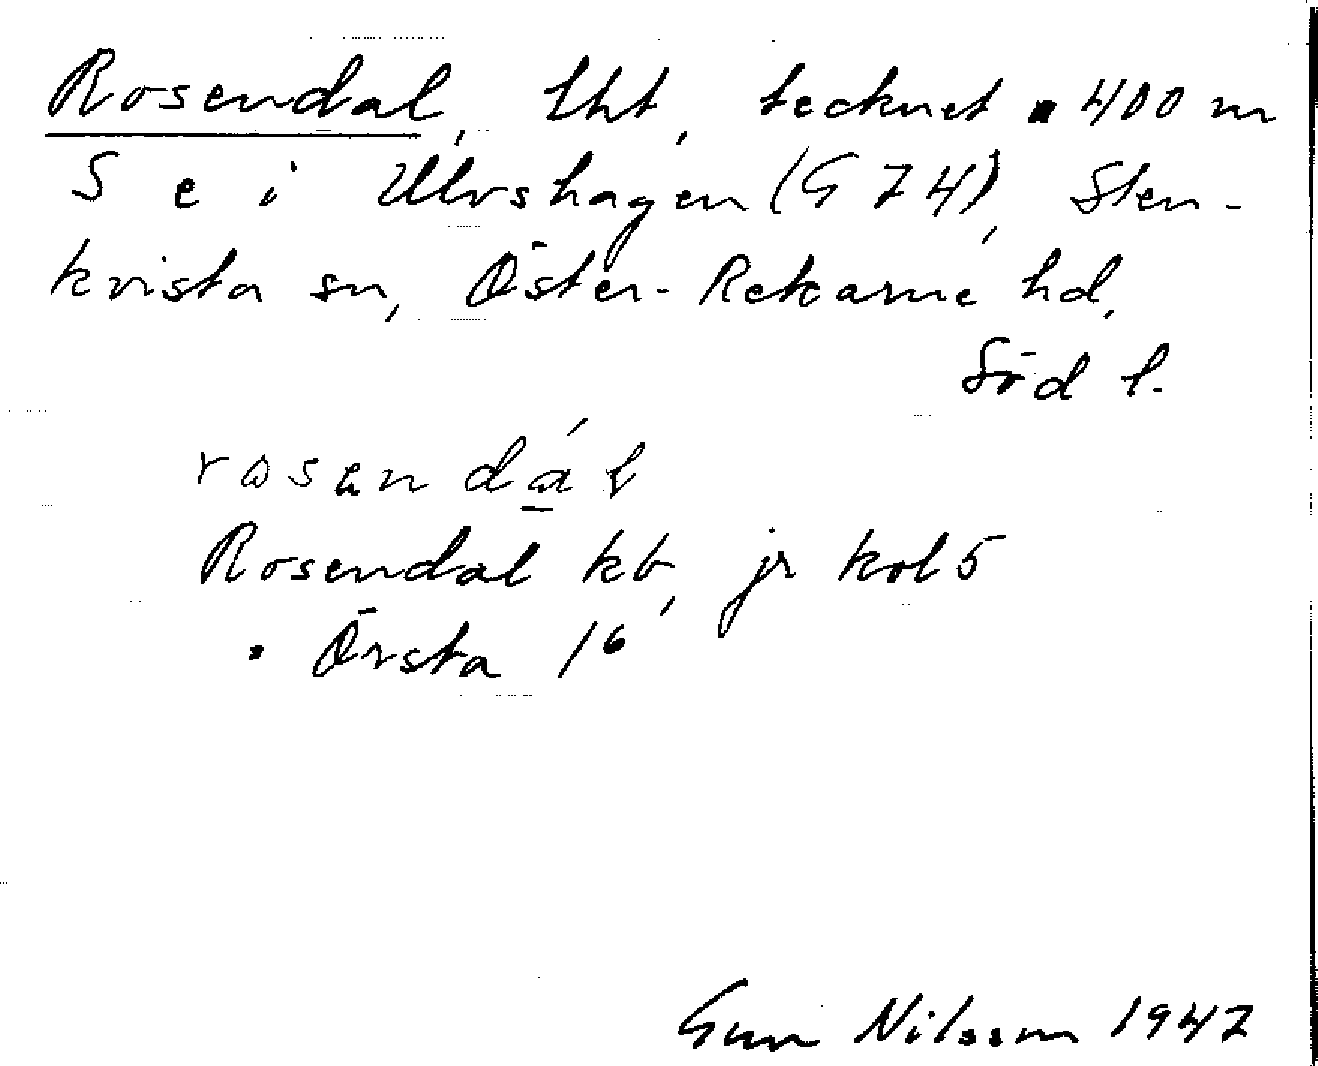 Rosendal, lht, tecknet ▪ 400 m
S e i Ulvshagen (G 74), Sten-
kvista sn, Öster-Rekarne hd,
Söd l.
rosendál
Rosendal kb, jr kol 5
▪ Örsta 1⁶
Gun Nilsson 1947